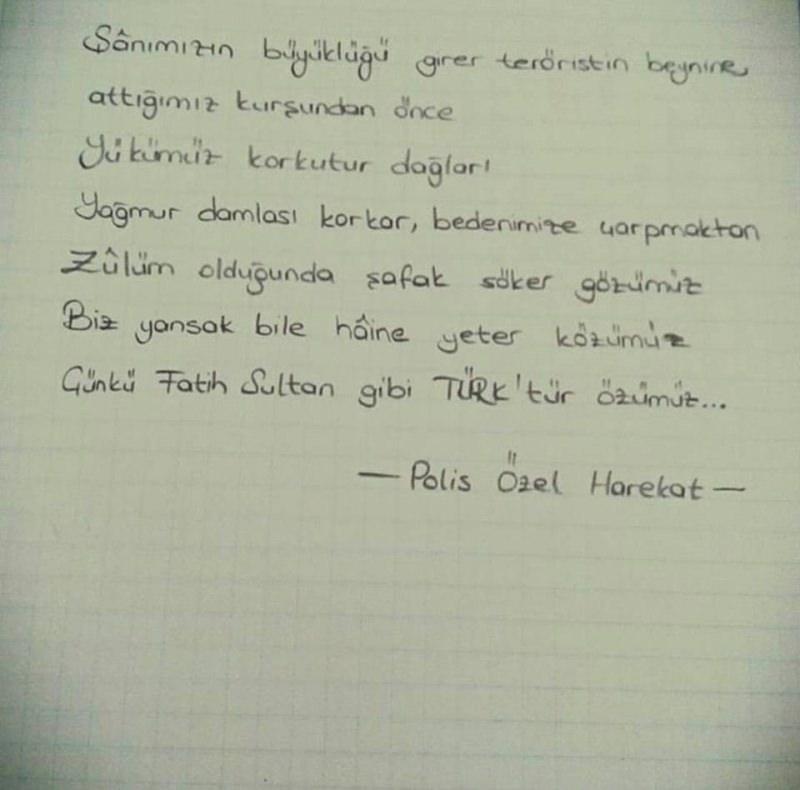 Şânımızın büyüklüğü girer teröristin beynine
attığımız kurşundan önce
Yükümüz korkutur dağları
Yağmur damlası korkar, bedenimize çarpmaktan
Zûlüm olduğunda şafak söker gözümüz
Biz yansak bile hâine yeter közümüz
Günkü Fatih Sultan gibi TÜRK'tür özümüz...
— Polis Özel Harekat —